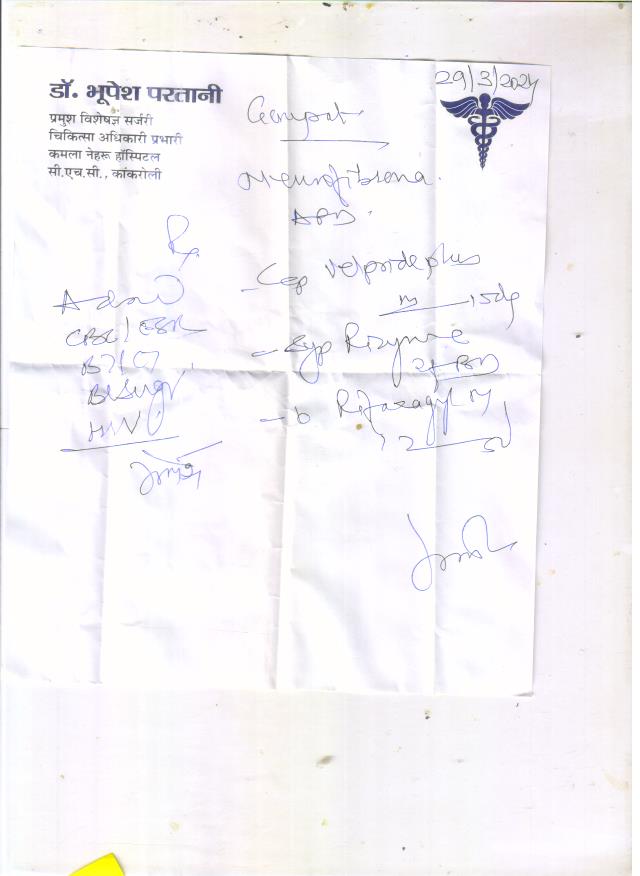 डॉ. भूपेश परतानी
प्रमुश विशेषज्ञ सर्जरी
चिकित्सा अधिकारी प्रभारी
कमला नेहरू हॉस्पिटल
सी.एच.सी., कांकरोली
29/3/2024
Ganpat
Neurofibroma
APD
Rx
Adv
CBC/ESR
BT/CT
Bl Sugr
HIV
- Cap Velpride plus
15dy
- Syp Rizyme
2f BD